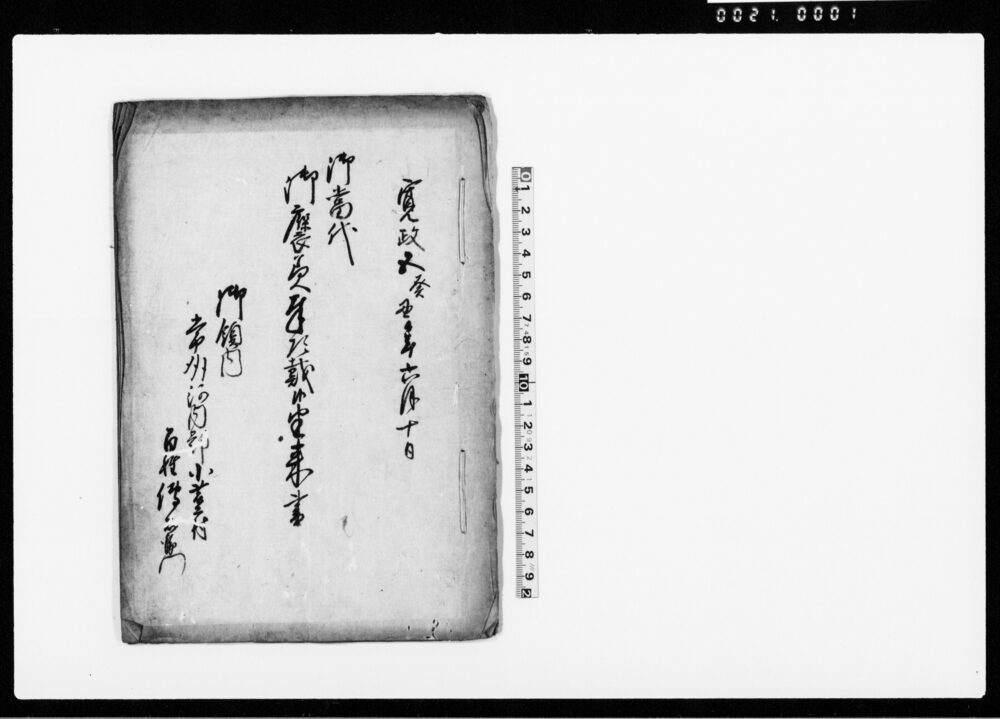 0021. 0001
寛政五癸丑年六月十日
御當代
御褒美頂戴由来書
御領内
常州河内郡小茎村
百姓傳右衛門
0 1 2 3 4 5 6 7 8 9 10 1 2 3 4 5 6 7 8 9 2